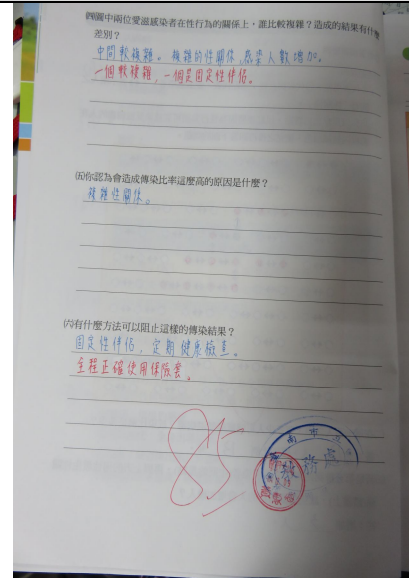 ㈣圖中兩位愛滋感染者在性行為的關係上，誰比較複雜？造成的結果有什麼
差別？
中間較複雜。複雜的性關係，感染人數增加。
一個較複雜，一個是固定性伴侶。
㈤你認為會造成傳染比率這麼高的原因是什麼？
複雜性關係。
㈥有什麼方法可以阻止這樣的傳染結果？
固定性伴侶，定期健康檢查。
全程正確使用保險套。
85
南市
教務處